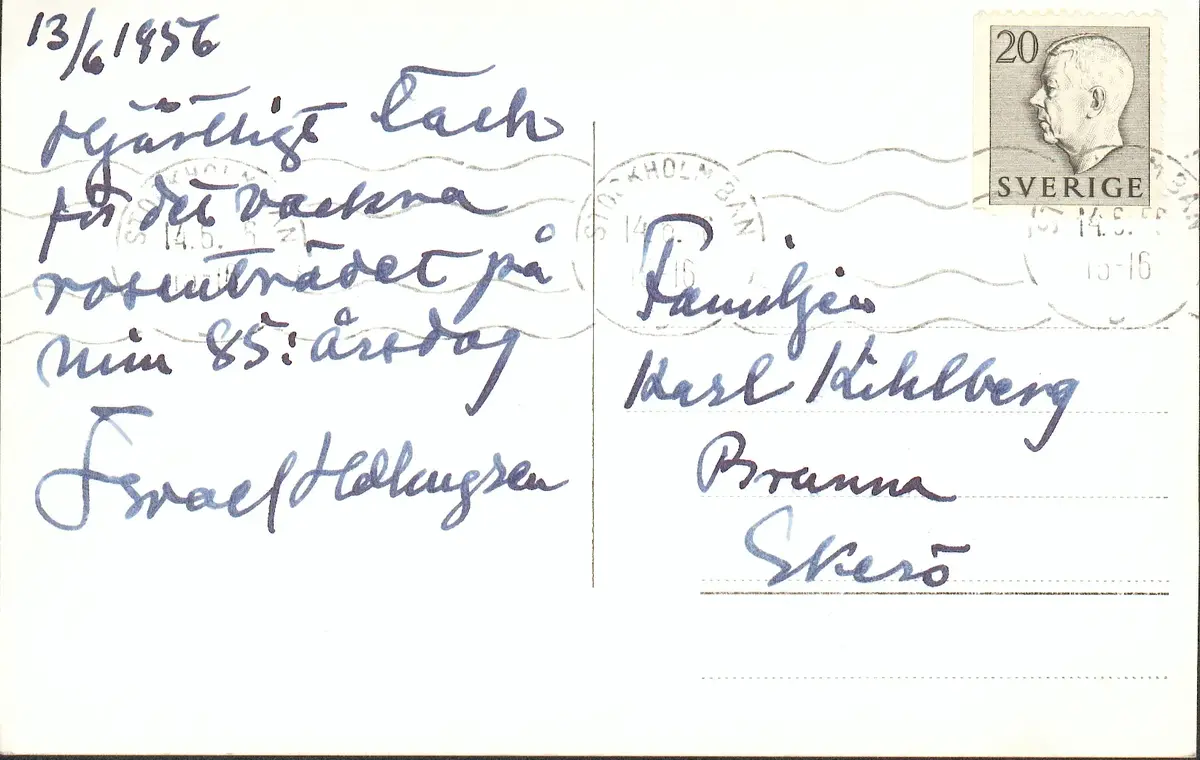 13/6 1956
Hjärtligt tack
för det vackra
rosenträdet på
min 85: årsdag
Israel Holmgren
20
SVERIGE
STOCKHOLM BAN
14.6.56
15-16
Familjen
Karl Kihlberg
Brunna
Ekerö